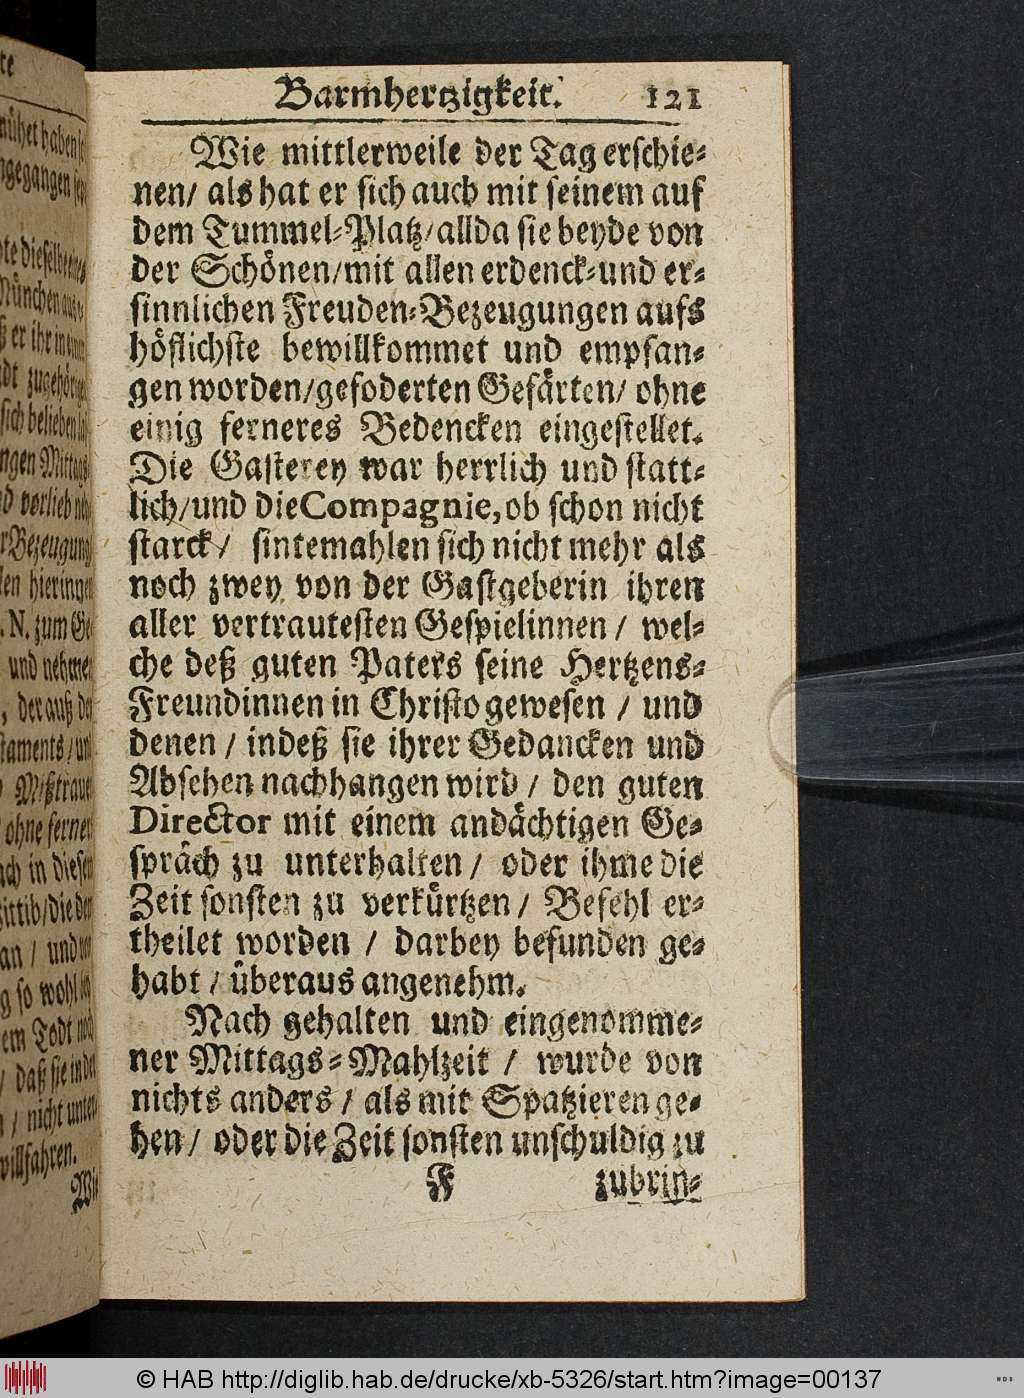 Barmhertzigkeit. 121
Wie mittlerweile der Tag erschie-
nen/ als hat er sich auch mit seinem auf
dem Tummel-Platz/allda sie beyde von
der Schönen/mit allen erdenck-und er-
sinnlichen Freuden-Bezeugungen aufs
höflichste bewillkommet und empfan-
gen worden/gefoderten Gefärten/ ohne
einig ferneres Bedencken eingestellet.
Die Gasterey war herrlich und statt-
lich/und die Compagnie, ob schon nicht
starck/ sintemahlen sich nicht mehr als
noch zwey von der Gastgeberin ihren
aller vertrautesten Gespielinnen / wel-
che deß guten Paters seine Hertzens-
Freundinnen in Christo gewesen / und
denen / indeß sie ihrer Gedancken und
Absehen nachhangen wird / den guten
Director mit einem andächtigen Ge-
spräch zu unterhalten / oder ihme die
Zeit sonsten zu verkürtzen / Befehl er-
theilet worden / darbey befunden ge-
habt / überaus angenehm.
Nach gehalten und eingenomme-
ner Mittags-Mahlzeit / wurde von
nichts anders / als mit Spatzieren ge-
hen / oder die Zeit sonsten unschuldig zu
F zubrin-
© HAB http://diglib.hab.de/drucke/xb-5326/start.htm?image=00137